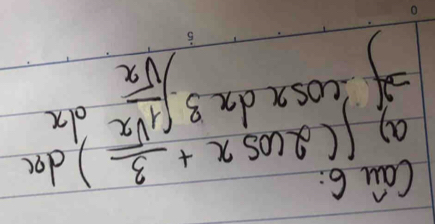 Câu 6:
a) ∫(2cosx + 3/√x) dx
= 2∫cosx dx 3∫1/√x dx